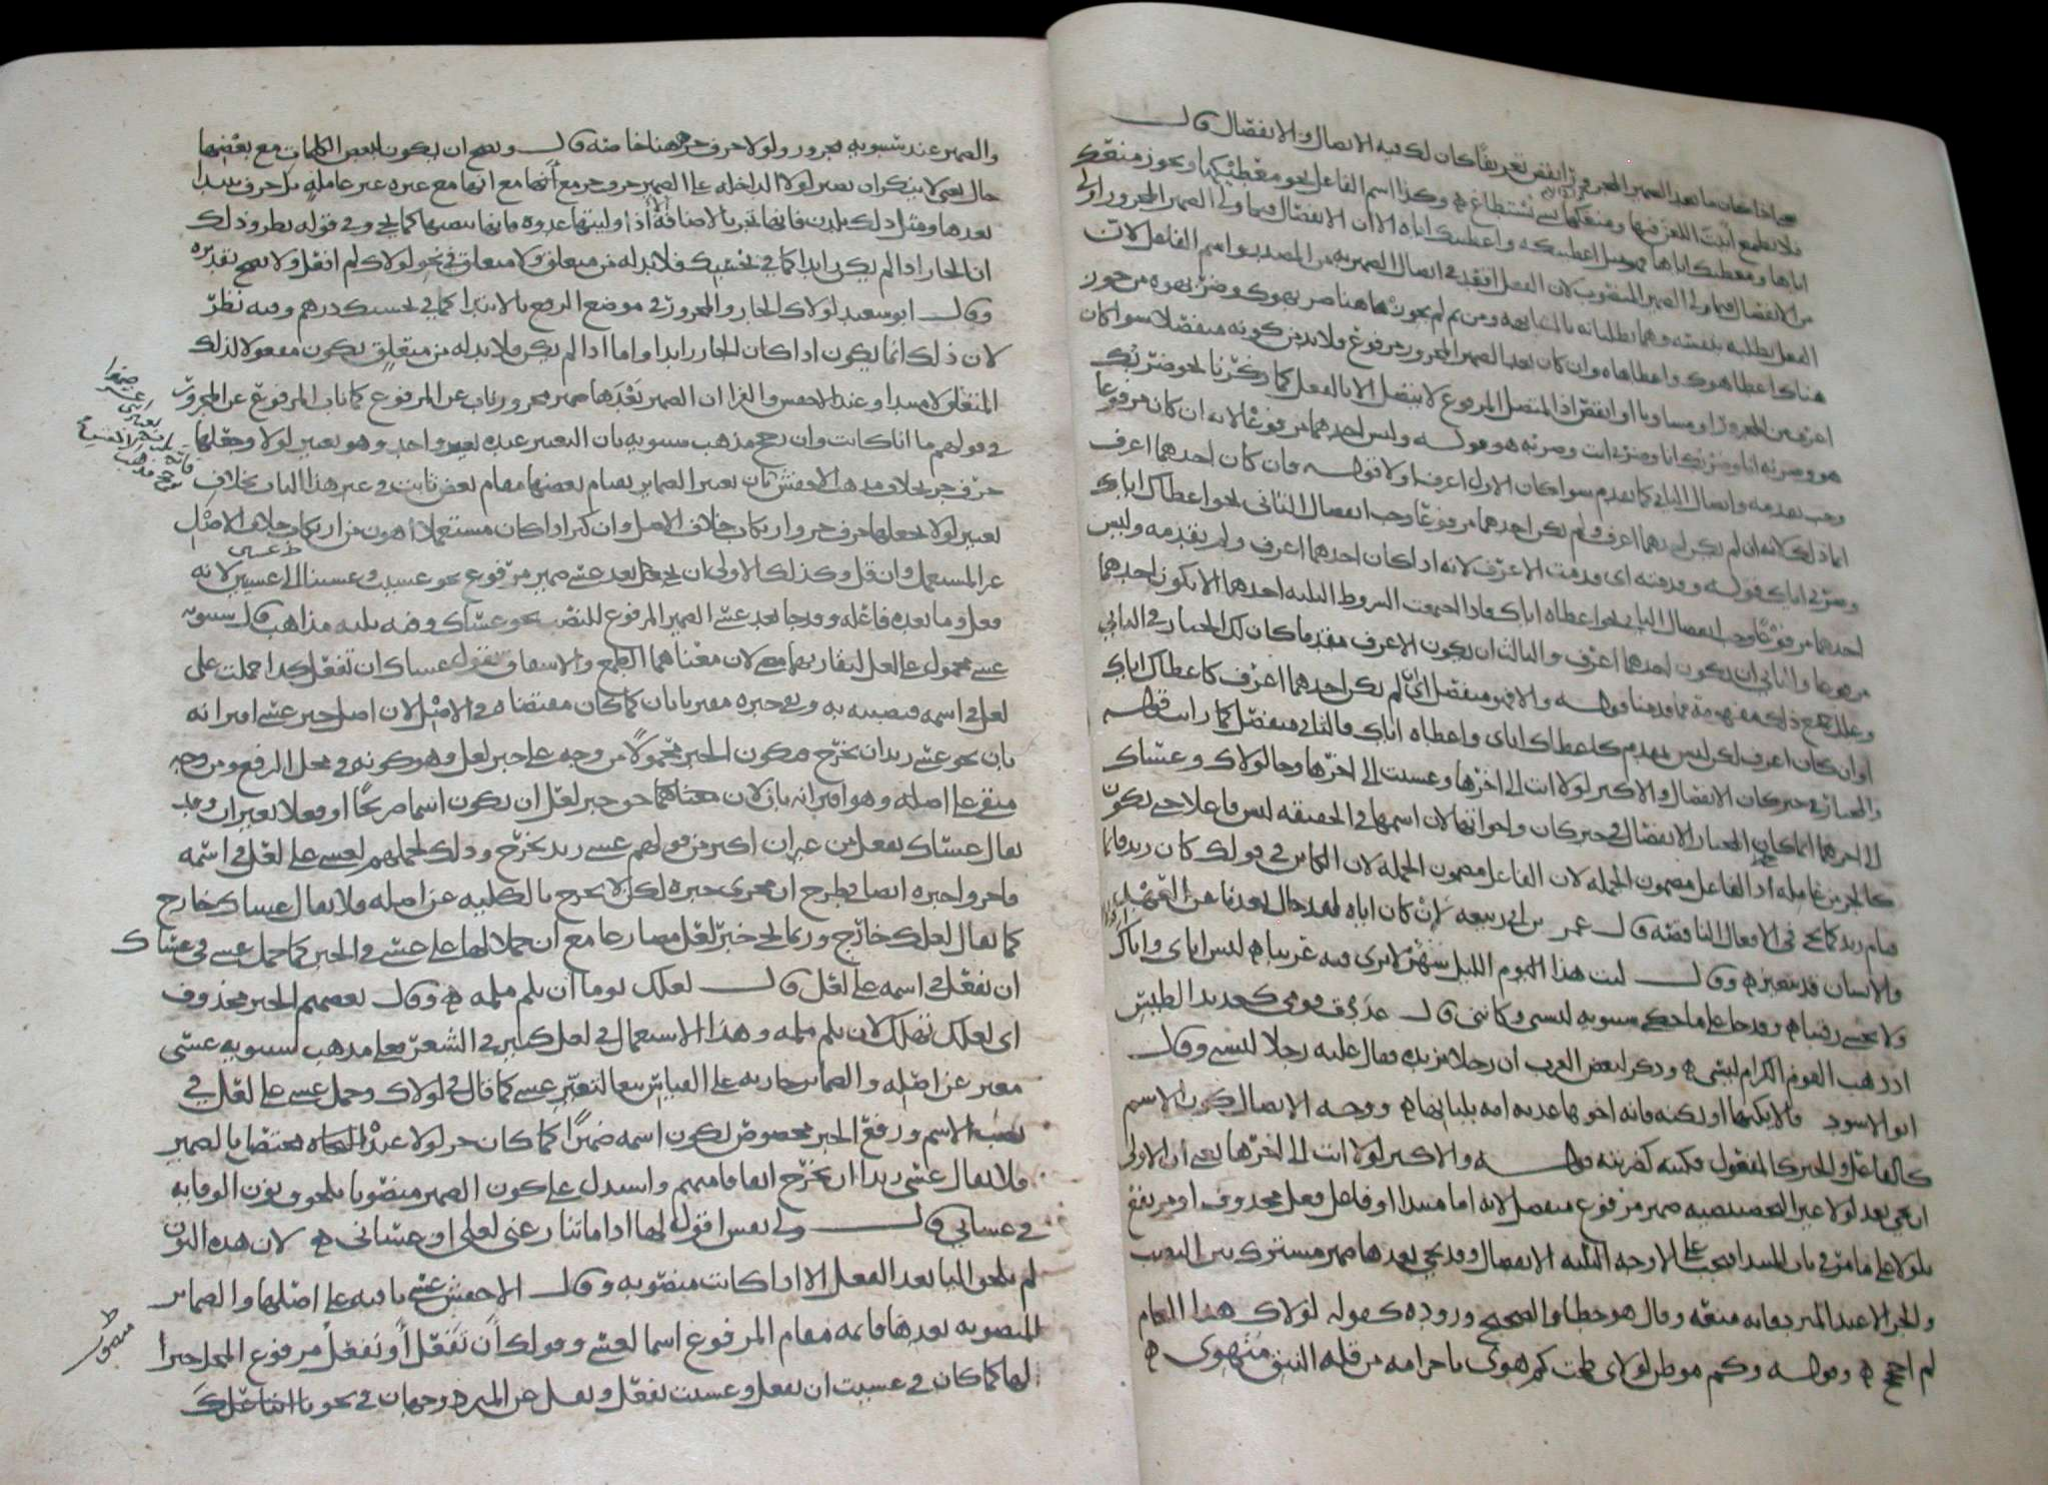 فاذا كان ما بعد الضمير المجرور انقص تعريفا كان لك فيه الاتصال والانفصال قال
فلا تطمع ابيت اللعن فيها ومنعكها بشي تستطاع ه وكذا اسم الفاعل نحو معطيكها ويجوز منعك
اياها ومعطيك اياها اعطيتكه واعطيتك اياه الا ان الانفصال فيما ولي الضمير المجرور اولى
من الانفصال فيما ولي الضمير المنصوب لان الفعل اقعد في اتصال الضمير به من المصدر واسم الفاعل لان
الفعل يطلبه بنفسه وهما يطلبانه بالمشابهة ومن ثم لم
هناك اعطاهوك واعطاهاه وان كان بعد الضمير المجرور مرفوع فلا بد من كونه منفصلا سوا كان
اعرف من المجرور او مساويا او انقص اذ المتصل المرفوع لا يتصل الا بالفعل كما ذكرنا نحو ضربك
هو وضربه انا وضربك انا وضربي انت وضربه هو قوله وليس احدهما مرفوعا لانه ان كان مرفوعا
وجب تقدمه واتصال الثاني كما تقدم سوا كان الاول اعرف او لا قوله فان كان احدهما اعرف
انما ذلك لانه ان لم يكن احدهما اعرف ولم يكن احدهما مرفوعا وجب انفصال الثاني نحو اعطاك اياك
وضربي اياك قوله وقدمته اي قدمت الاعرف لانه اذا كان احدهما اعرف ولم تقدمه وليس
احدهما مرفوعا وجب انفصال الثاني نحو اعطاه اياك فاذا اجتمعت الشروط الثلثه احدها الا يكون احدهما
مرفوعا والثاني ان يكون احدهما اعرف والثالث ان يكون الاعرف مقدما كان لك الخيار في الثاني
وعلل جميع ذلك مفهومة مما قدمنا قوله والا فهو منفصل اي ان لم يكن احدهما اعرف كاعطاك اياك
او ان كان اعرف لكن ليس بمقدم كاعطاك اياي واعطاه اياك فالثاني منفصل كما رايت قوله
والمختار في خبر كان الانفصال والاكثر لولا انت الى اخرها وعسيت الى اخرها وجا لولاك وعساك
الى اخرهما انما كان المختار الانفصال في خبر كان واخواتها لان اسمها في الحقيقة ليس فاعلا حتى يكون
كالجزء من عامله اذ الفاعل مضمون الجملة لان الكاين في قولك كان زيد قايما
قيام زيد كما يجي في الافعال الناقصة قال عمر بن ابي ربيعه لئن كان اياه لقد حال بعدنا عن العهد
والانسان قد يتغير ه وقال ليت هذا الليل شهر لا نرى فيه غريبا ه ليس اياي واياك
ولا نخشى رقيبا ه وقد حكى سيبويه ليسني وكانني قال عددت قومي كعديد الطيس
اذ ذهب القوم الكرام ليسي ه وذكر لبعض العرب ان رجلا يريده فقال عليه رجلا ليسني وقال
ابو الاسود فالا يكنها او تكنه فانه اخوها غذته امه بلبانها ه ووجه الاتصال كون الاسم
كالفاعل والخبر كالمفعول فكنته كضربته قوله والاكثر لولا انت الى اخرها يعني ان الاولى
ان يجي بعد لولا غير التحضيضيه ضمير مرفوع منفصل لانه اما مبتدا او فاعل فعل محذوف او مرتفع
بلولا على ما مر في باب المبتدا فيجب على الاوجه الثلثه الانفصال وقد يجي بعدها ضمير مشترك بين النصب
والجر الا عند المبرد فانه منعه وقال هو خطا والصحيح وروده كقوله لولاك هذا العام
لم احجج ه وقوله وكم موطن لولاي طحت كما هوى باجرامه من قلة النيق منهوي ه
والضمير عند سيبويه مجرور ولولا حرف جر ههنا خاصة قال ويصح ان يكون لبعض الكلمات مع بعضها
حال يعني لا ينكر ان تصير لولا الداخلة على الضمير حرف جر مع انها مع غيره غير عاملة بل حرف يبتدا
بعدها ومثل ذلك بلدن فانها تجر بالاضافة اذا وليتها غدوة فانها تنصبها كما يجي وفي قوله نظر وذلك
ان الجار اذا لم يكن زايدا كما في بحسبك فلا بد له من متعلق ولا متعلق في نحو لولاك لم افعل ولا يصح تقديره
وقال ابو سعيد لولاك الجار والمجرور في موضع الرفع بالابتدا كما في بحسبك درهم وفيه نظر
لان ذلك انما يكون اذا كان الجار زايدا واما اذا لم يكن فلا بد له من متعلق يكون مفعولا لذلك
المتعلق لا مبتدا وعند الاخفش والفرا ان الضمير بعدها ضمير مجرور ناب عن المرفوع كما ناب المرفوع عن المجرور
في قولهم ما انا كانت وان رجح مذهب سيبويه بان التغيير عنده تغيير واحد وهو تغيير لولا وجعلها
حرف جر بخلاف مذهب الاخفش بان تغيير الضماير بقيام بعضها مقام بعض ثابت في غير هذا الباب بخلاف
تغيير لولا بجعلها حرف جر وارتكاب خلاف الاصل وان كثر اذا كان مستعملا اهون من ارتكاب خلاف الاصل
غير المستعمل وان قل وكذلك الاولى ان يجي بعد عسى ضمير مرفوع نحو عسيت وعسينا الى عسين لانه
فعل وما بعده فاعله وقد جا بعد عسى الضمير المرفوع للنصب نحو عساك وفيه ثلثه مذاهب قال سيبويه
عسى محمول على لعل لتقاربهما معنى لان معناهما الطمع والاشفاق تقول عساك ان تفعل كذا حملت على
لعل في اسمه فنصبته به وبقي خبره مقترنا بان كما كان مقتضاه في الاصل لان اصل خبر عسى اقترانه
بان نحو عسى زيد ان يخرج فيكون الخبر محمولا من وجه على خبر لعل وهو كونه في محل الرفع ومن وجه
مبقى على اصله وهو اقترانه بان لان معناهما حق خبر لعل ان يكون اسما صريحا او فعلا بغير ان وقد
يقال عساك تفعل من غير ان اكثر من قولهم عسى زيد يخرج وذلك لحملهم لعسى على لعل في اسمه
فاجرو خبره ايضا في طرح ان مجرى خبره لكن لا يخرج بالكلية عن اصله فلا يقال عساك خارج
كما يقال لعلك خارج وربما يجي خبر لعل مضارعا مع ان حملا لها على عسى في الخبر كما حمل عسى في عساك
ان تفعل في اسمه على لعل قال لعلك يوما ان تلم ملمة ه وقال بعضهم الخبر محذوف
اي لعلك تهلك لان تلم ملمة وهذا الاستعمال في لعل كثير في الشعر فعلى مذهب سيبويه عسى
مغير عن اصله والضماير جاريه على القياس تبعا لتغير عسى كما قال في لولاك وحمل عسى على لعل في
نصب الاسم ورفع الخبر مخصوص بكون اسمه ضميرا كما كان جر لولا عنده مختصا بالضمير
فلا يقال عسى زيدا ان يخرج اتفاقا منهم واستدل على كون الضمير منصوبا بلحوق نون الوقاية
في عساني قال ولي نفس اقول لها اذا ما تنازعني لعلي او عساني ه لان هذه النون
لم تلحق اليا بعد الفعل الا اذا كانت منصوبه وقال الاخفش عسى باقية على اصلها والضماير
المنصوبه بعدها قائمه مقام المرفوع اسما لعسى وقولك ان تفعل او تفعل مرفوع المحل خبرا
لها كما كان في عسيت ان تفعل وعسيت تفعل ونقل عن المبرد وجهان في نحو يا ابتا علك